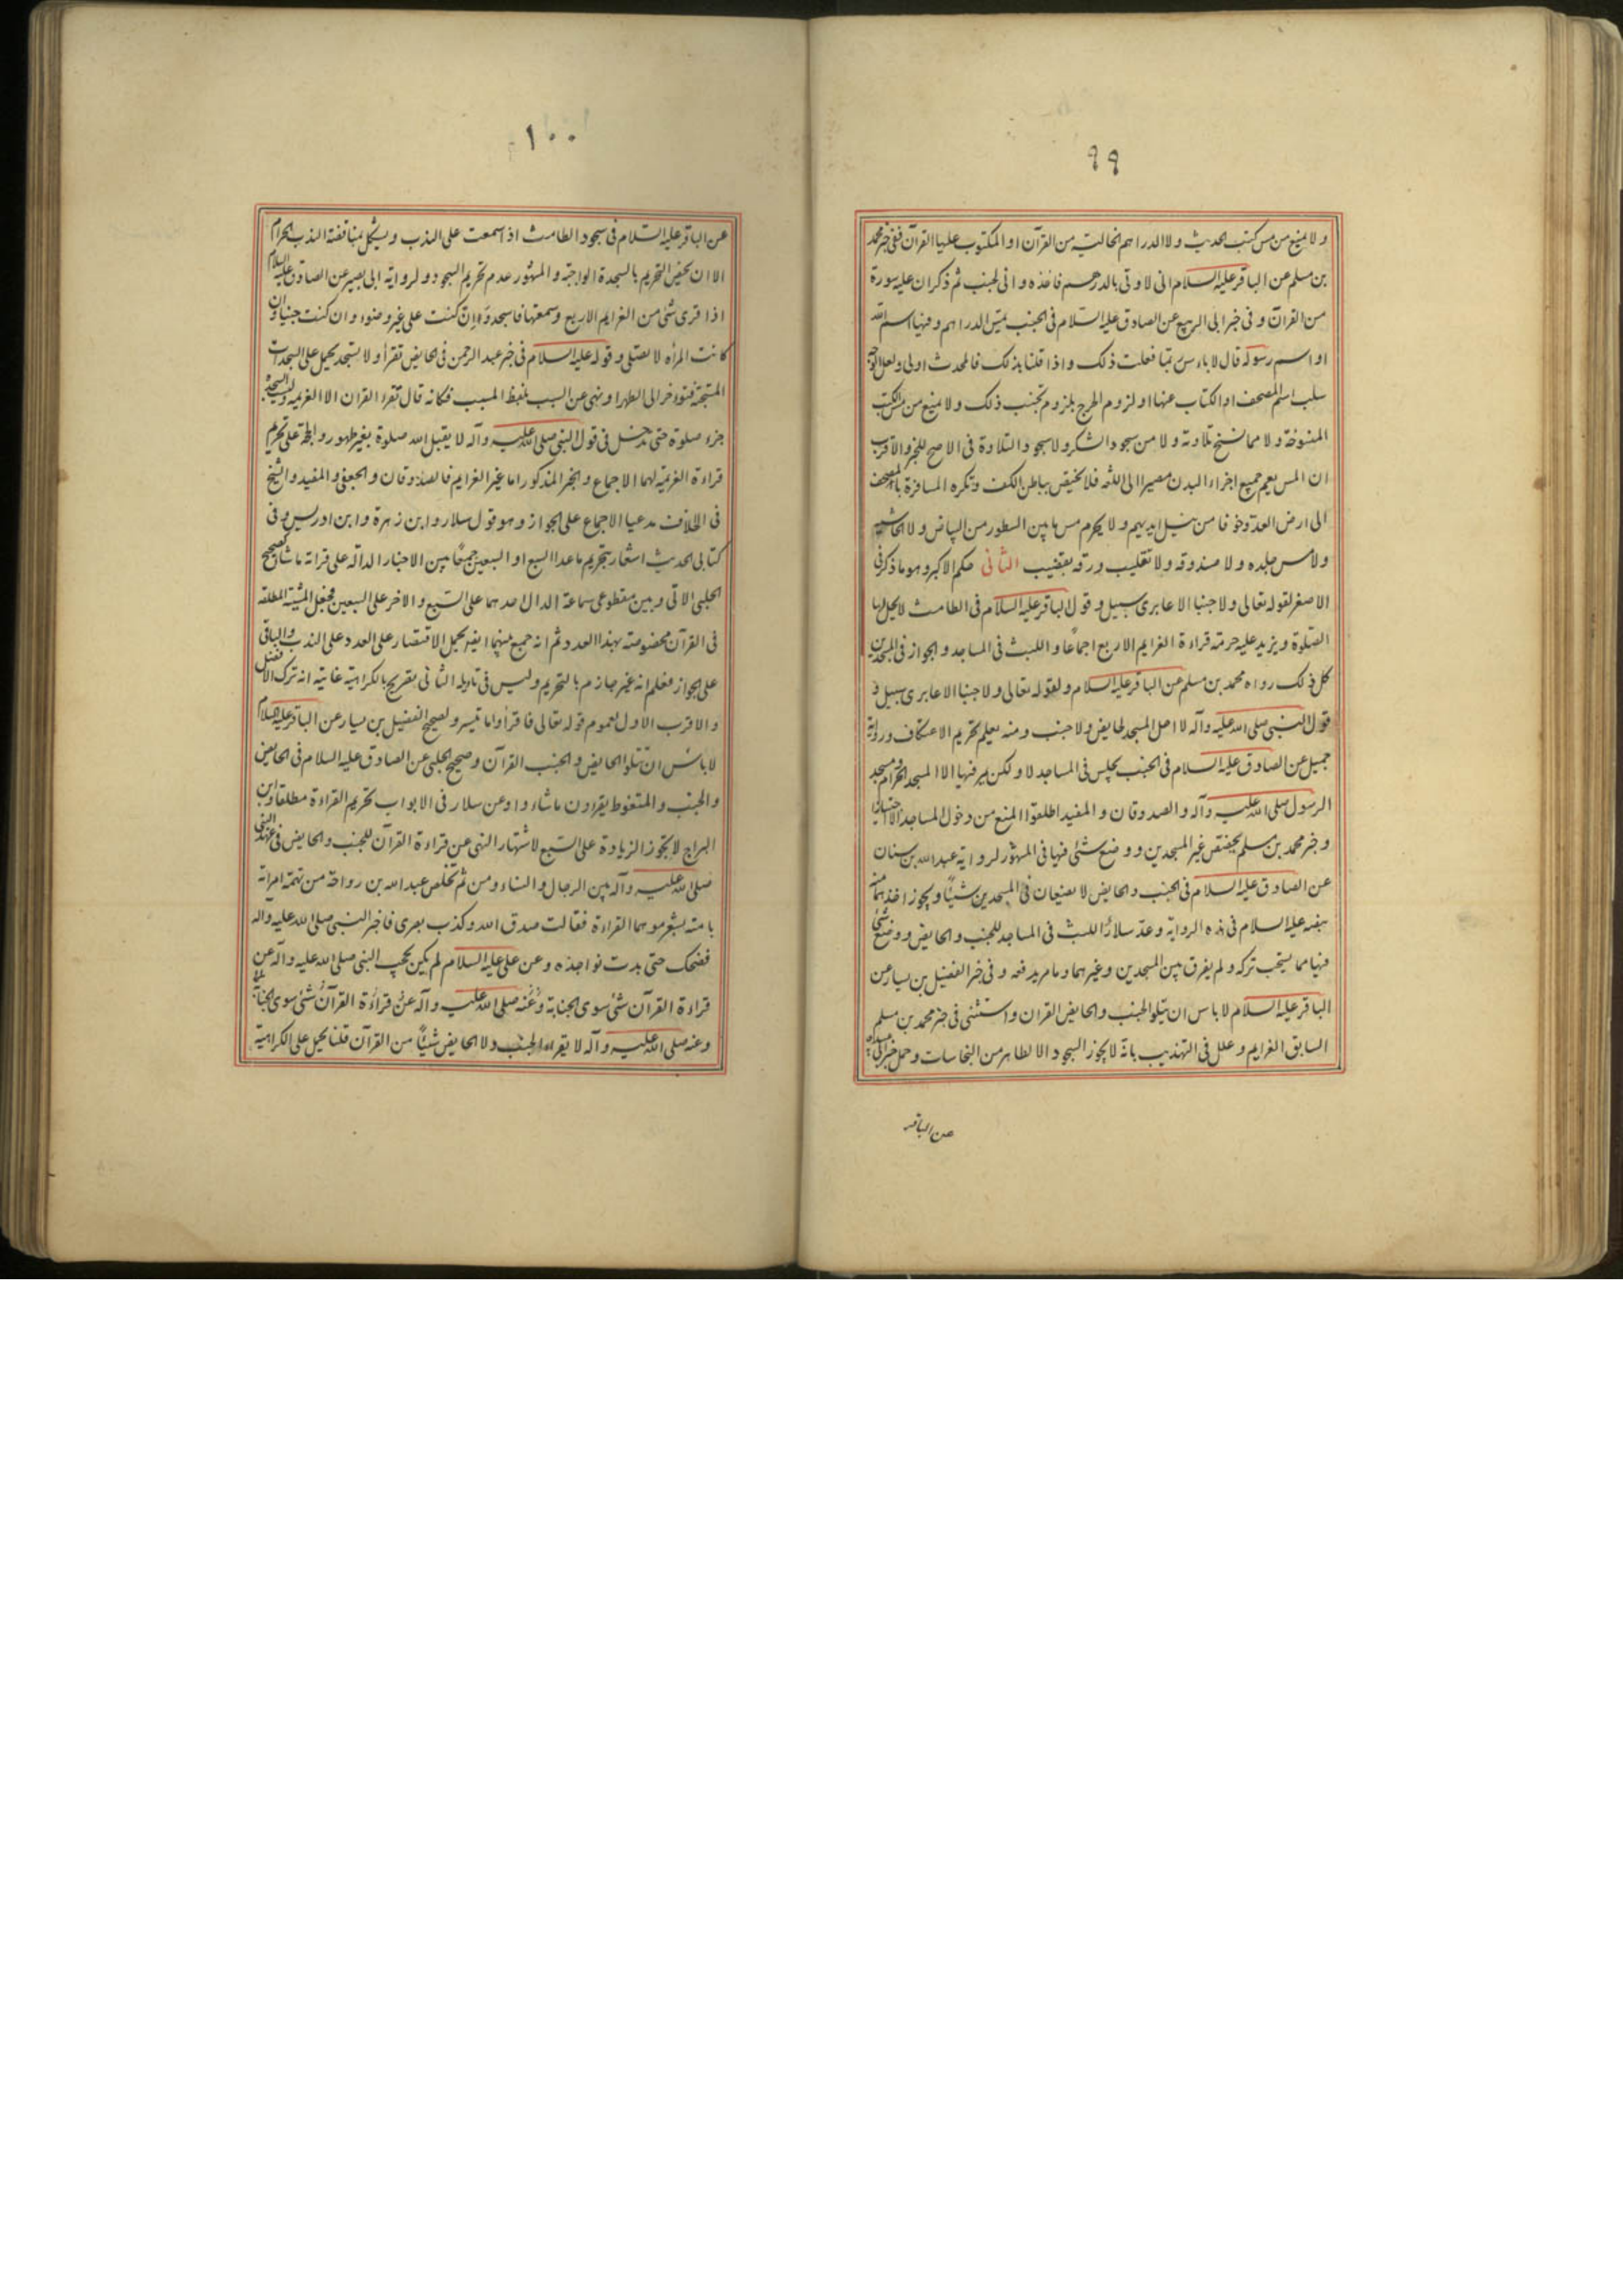 ٩٩
ولا منع من مس كتب الحديث ولا الدراهم الخالية من القرآن او المكتوب عليها القرآن ففى خبر محمد
بن مسلم عن الباقر عليه السلام انى لاوتى بالدرهم فاخذه وانى لجنب ثم ذكر ان عليه سورة
من القرآن وفى خبر ابى الربيع عن الصادق عليه السلام فى الجنب يمس الدراهم وفيها اسم الله
او اسم رسوله قال لا باس ربما فعلت ذلك واذا قلنا بذلك فالمحدث اولى ولعل الوجه
سلب اسم المصحف او الكتاب عنها او لزوم الحرج بلزوم تجنب ذلك ولا منع من مس الكتب
المنسوخة ولا مما نسخ تلاوته ولا من سجود الشكر ولا سجود التلاوة فى الاصح للخبر والاقرب
ان المس يعم جميع اجزاء البدن مصيرا الى اللغة فلا يختص بباطن الكف وتكره المسافرة بالمصحف
الى ارض العدو خوفا من نيل ايديهم ولا يحرم مس ما بين السطور من البياض ولا الحاشية
ولا مس جلده ولا صندوقه ولا تقليب ورقه بقضيب الثانى حكم الاكبر وهو ما ذكر فى
الاصغر لقوله تعالى ولا جنبا الا عابرى سبيل وقول الباقر عليه السلام فى الطامث لا يحل لها
الصلوة ويزيد عليه حرمة قراءة العزايم الاربع اجماعا واللبث فى المساجد والجواز فى المسجدين
كل ذلك رواه محمد بن مسلم عن الباقر عليه السلام ولقوله تعالى ولا جنبا الا عابرى سبيل و
قول النبى صلى الله عليه وآله لا احل المسجد لحايض ولا جنب ومنه يعلم تحريم الاعتكاف ورواية
جميل عن الصادق عليه السلام فى الجنب يجلس فى المساجد لا ولكن يمر فيها الا المسجد الحرام ومسجد
الرسول صلى الله عليه وآله والصدوقان والمفيد اطلقوا المنع من دخول المساجد الا اجتيازا
وخبر محمد بن مسلم يختص غير المسجدين ووضع شئ فيها فى المشهور لرواية عبد الله بن سنان
عن الصادق عليه السلام فى الجنب والحايض لا يضعان فى المسجدين شيئا ويجوز اخذهما منه
بنصه عليه السلام فى هذه الرواية وعد سلار اللبث فى المساجد للجنب والحايض ووضع شئ
فيها مما يستحب تركه ولم يفرق بين المسجدين وغيرهما وما مر يدفعه وفى خبر الفضيل بن يسار عن
الباقر عليه السلام لا باس ان يتلو الجنب والحايض القران واستثنى فى خبر محمد بن مسلم
السابق العزايم وعلل فى التهذيب بانه لا يجوز السجود الا لطاهر من النجاسات وحمل خبر ابى عبيدة
عن الباقر
١٠٠
عن الباقر عليه السلام فى سجود الطامث اذا سمعت على الندب ويشكل بمناقضة الندب الحرام
الا ان يختص التحريم بالسجدة الواجبة والمشهور عدم تحريم السجود ولرواية ابى بصير عن الصادق عليه السلام
اذا قرئ شئ من العزايم الاربع وسمعتها فاسجد وان كنت على غير وضوء وان كنت جنبا وان
كانت المراه لا تصلى وقوله عليه السلام فى خبر عبد الرحمن فى الحايض تقرأ ولا تسجد يحمل على السجدات
المستحبة فتؤخر الى الطهر او نهى عن السبب بلفظ المسبب فكانه قال تقرء القران الا العزيمة وليست السجدة
جزء صلوة حتى تدخل فى قول النبى صلى الله عليه وآله لا يقبل الله صلوة بغير طهور والحجة على تحريم
قراءة العزيمة لهما الاجماع والخبر المذكور اما غير العزايم فالصدوقان والجعفى والمفيد والشيخ
فى الخلاف مدعيا الاجماع على الجواز وهو قول سلار وابن زهرة وابن ادريس وفى
كتابى الحديث اشعار بتحريم ما عدا السبع او السبعين جمعا بين الاخبار الدالة على قراءة ما شاء كصحيح
الحلبى الاتى وبين مقطوعى سماعة الدال احدهما على السبع والاخر على السبعين فجعل المشية المطلقه
فى القرآن مخصوصة بهذا العدد ثم انه جمع بينهما ايضا بحمل الاقتصار على العدد على الندب والباقى
على الجواز فعلم انه غير جازم بالتحريم وليس فى تاويله الثانى تصريح بالكراهية غايته انه ترك الافضل
والاقرب الاول لعموم قوله تعالى فاقرأوا ما تيسر ولصحيح الفضيل بن يسار عن الباقر عليه السلام
لا باس ان تتلو الحايض والجنب القرآن وصحيح الحلبى عن الصادق عليه السلام فى الحايض
والجنب والمتغوط يقرءون ما شاءوا وعن سلار فى الابواب تحريم القراءة مطلقا وابن
البراج لا يجوز الزيادة على السبع لاشتهار النهى عن قراءة القرآن للجنب والحايض فى عهد النبى
صلى الله عليه وآله بين الرجال والنساء ومن ثم تخلص عبد الله بن رواحة من تهمة امراته
بامته بشعر موهما القراءة فقالت صدق الله وكذب بصرى فاخبر النبى صلى الله عليه واله
فضحك حتى بدت نواجذه وعن على عليه السلام لم يكن يحجب النبى صلى الله عليه وآله عن
قراءة القرآن شئ سوى الجنابة وعنه صلى الله عليه وآله عن قراءة القرآن شئ سوى الجنابة
وعنه صلى الله عليه وآله لا يقراء الجنب ولا الحايض شيئا من القرآن قلنا يحمل على الكراهية